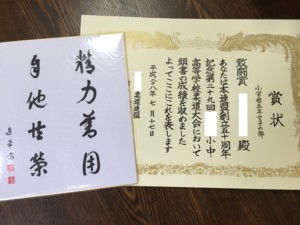 精力善用
自他共栄
賞状
敢闘賞
殿
あなたは本連盟創立五十周年
記念第二十九回 小中
高等学校柔道大会において
頭書の成績を収めました
よってここにこれを表します
平成二八年七月十七日
柔道連盟